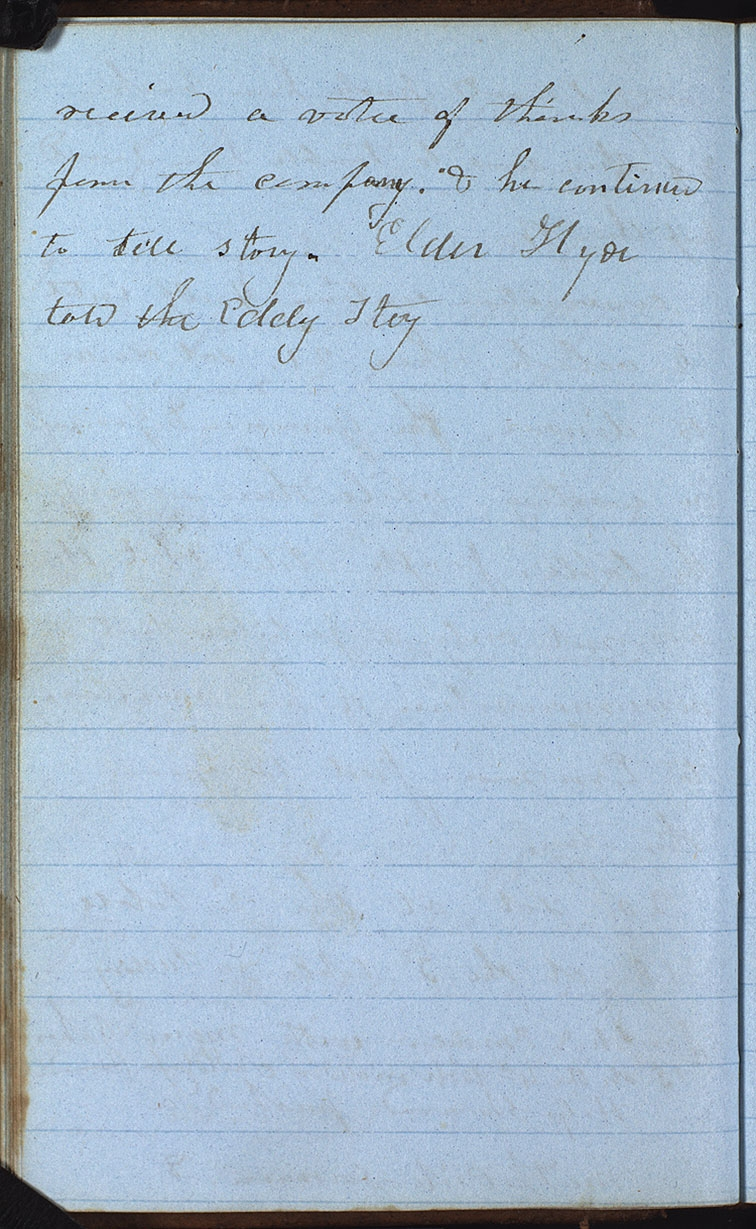 recieved a votee of thanks
from the company. & he continued
to tell story. Elder Hyde
told the Eddy Stoy